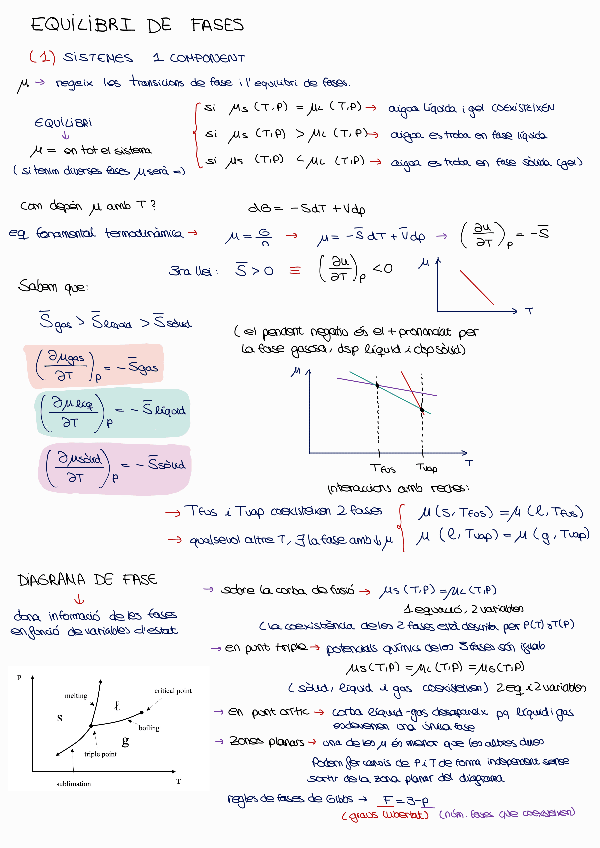 EQUILIBRI DE FASES
(1) SISTEMES 1 COMPONENT
μ → regeix les transicions de fase i l'equilibri de fases.
EQUILIBRI
↓
μ = en tot el sistema
(si tenim diverses fases μ serà =)
si μs (T,P) = μL (T,P) → aigua líquida i gel COEXISTEIXEN
si μs (T,P) > μL (T,P) → aigua es troba en fase líquida
si μs (T,P) < μL (T,P) → aigua es troba en fase sòlida (gel)
Com depèn μ amb T?
dG = -SdT + Vdp
eq fonamental termodinàmica → μ = G/n → μ = -S̅dT + V̅dp → (∂μ/∂T)p = -S̅
3ra llei: S̅ > 0 ≡ (∂μ/∂T)p < 0
μ
T
Sabem que:
S̅gas > S̅líquid > S̅sòlid
(el pendent negatiu és el + pronunciat per
la fase gasosa, dsp líquid i dsp sòlid)
(∂μgas/∂T)p = -S̅gas
(∂μ líq/∂T)p = -S̅líquid
(∂μsòlid/∂T)p = -S̅sòlid
μ
TFUS
Tvap
T
interaccions amb rectes:
→ TFUS i Tvap coexisteixen 2 fases
→ qualsevol altre T, ∃ la fase amb ↓μ
μ (s, TFUS) = μ (l, TFUS)
μ (l, Tvap) = μ (g, Tvap)
DIAGRAMA DE FASE
↓
dona informació de les fases
en funció de variables d'estat
P
melting
critical point
s
l
boiling
g
triple point
sublimation
T
→ sobre la corba de fusió → μs (T,P) = μL (T,P)
1 equació, 2 variables
(la coexistència de les 2 fases està descrita per P(T) o T(P)
→ en punt triple → potencials químics de les 3 fases són iguals
μs (T,P) = μL (T,P) = μG (T,P)
(sòlid, líquid i gas coexisteixen) 2 eq i 2 variables
→ en punt crític → corba líquid-gas desapareix pq líquid i gas
esdevenen una única fase
→ zones planars → una de les μ és menor que les altres dues
Podem fer canvis de P i T de forma independent sense
sortir de la zona planar del diagrama
regles de fases de Gibbs → F = 3-p
(graus llibertat) (núm. fases que coexisteixen)